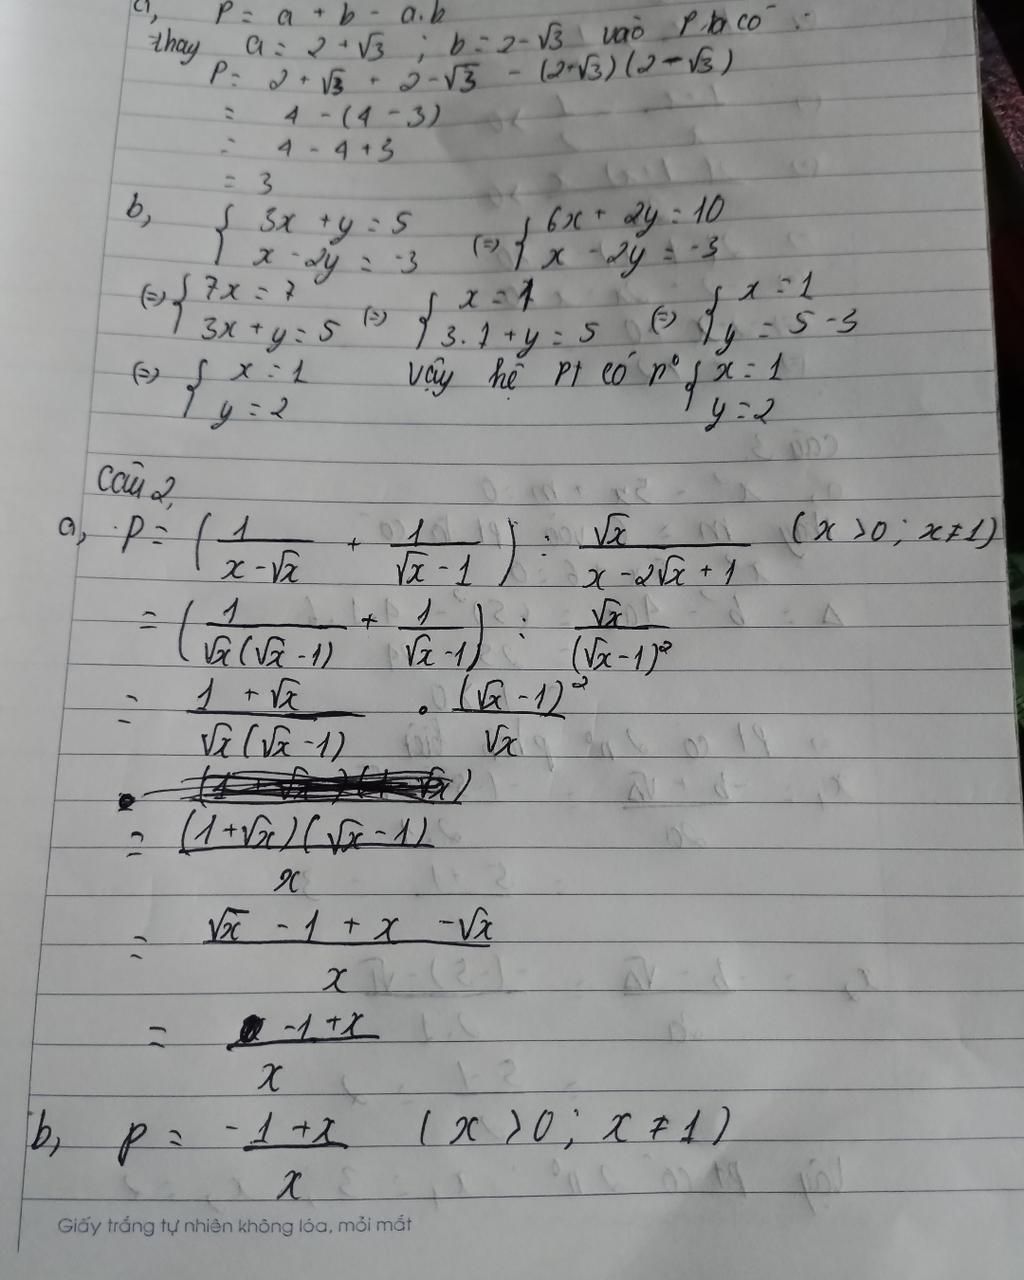 a, P = a + b - a.b
thay a = 2 + √3 ; b = 2 - √3 vào P ta có :
P = 2 + √3 + 2 - √3 - (2+√3)(2-√3)
= 4 - (4 - 3)
= 4 - 4 + 3
= 3
b, { 3x + y = 5 ; x - 2y = -3 (=) { 6x + 2y = 10 ; x - 2y = -3
(=) { 7x = 7 ; 3x + y = 5 (=) { x = 1 ; 3.1 + y = 5 (=) { x = 1 ; y = 5 - 3
(=) { x = 1 ; y = 2 Vậy hệ PT có n° { x = 1 ; y = 2
Câu 2,
a, P = ( 1/(x - √x) + 1/(√x - 1) ) : √x/(x - 2√x + 1) (x > 0 ; x ≠ 1)
= ( 1/(√x(√x - 1)) + 1/(√x - 1) ) : √x/(√x - 1)²
= (1 + √x)/(√x(√x - 1)) . (√x - 1)²/√x
= (1 + √x)(√x - 1)/x
= (√x - 1 + x - √x)/x
= (-1 + x)/x
b, P = (-1 + x)/x (x > 0 ; x ≠ 1)
Giấy trắng tự nhiên không lóa, mỏi mắt